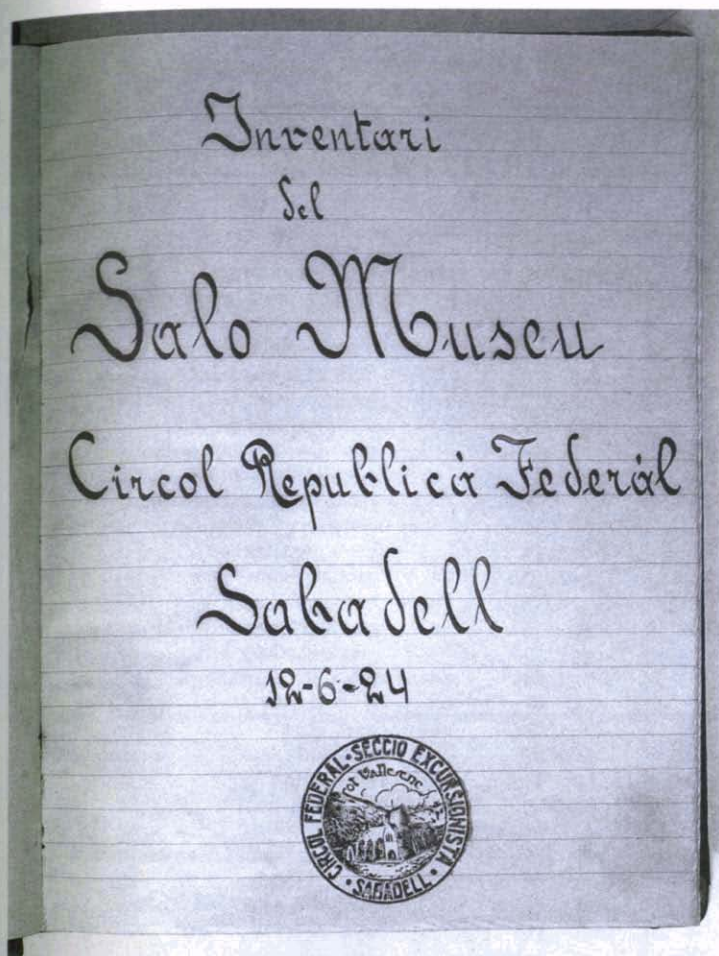 Inventari
del
Salo Museu
Circol Republicà Federál
Sabadell
12-6-24
CIRCOL FEDERAL · SECCIO EXCURSIONISTA · SABADELL ·